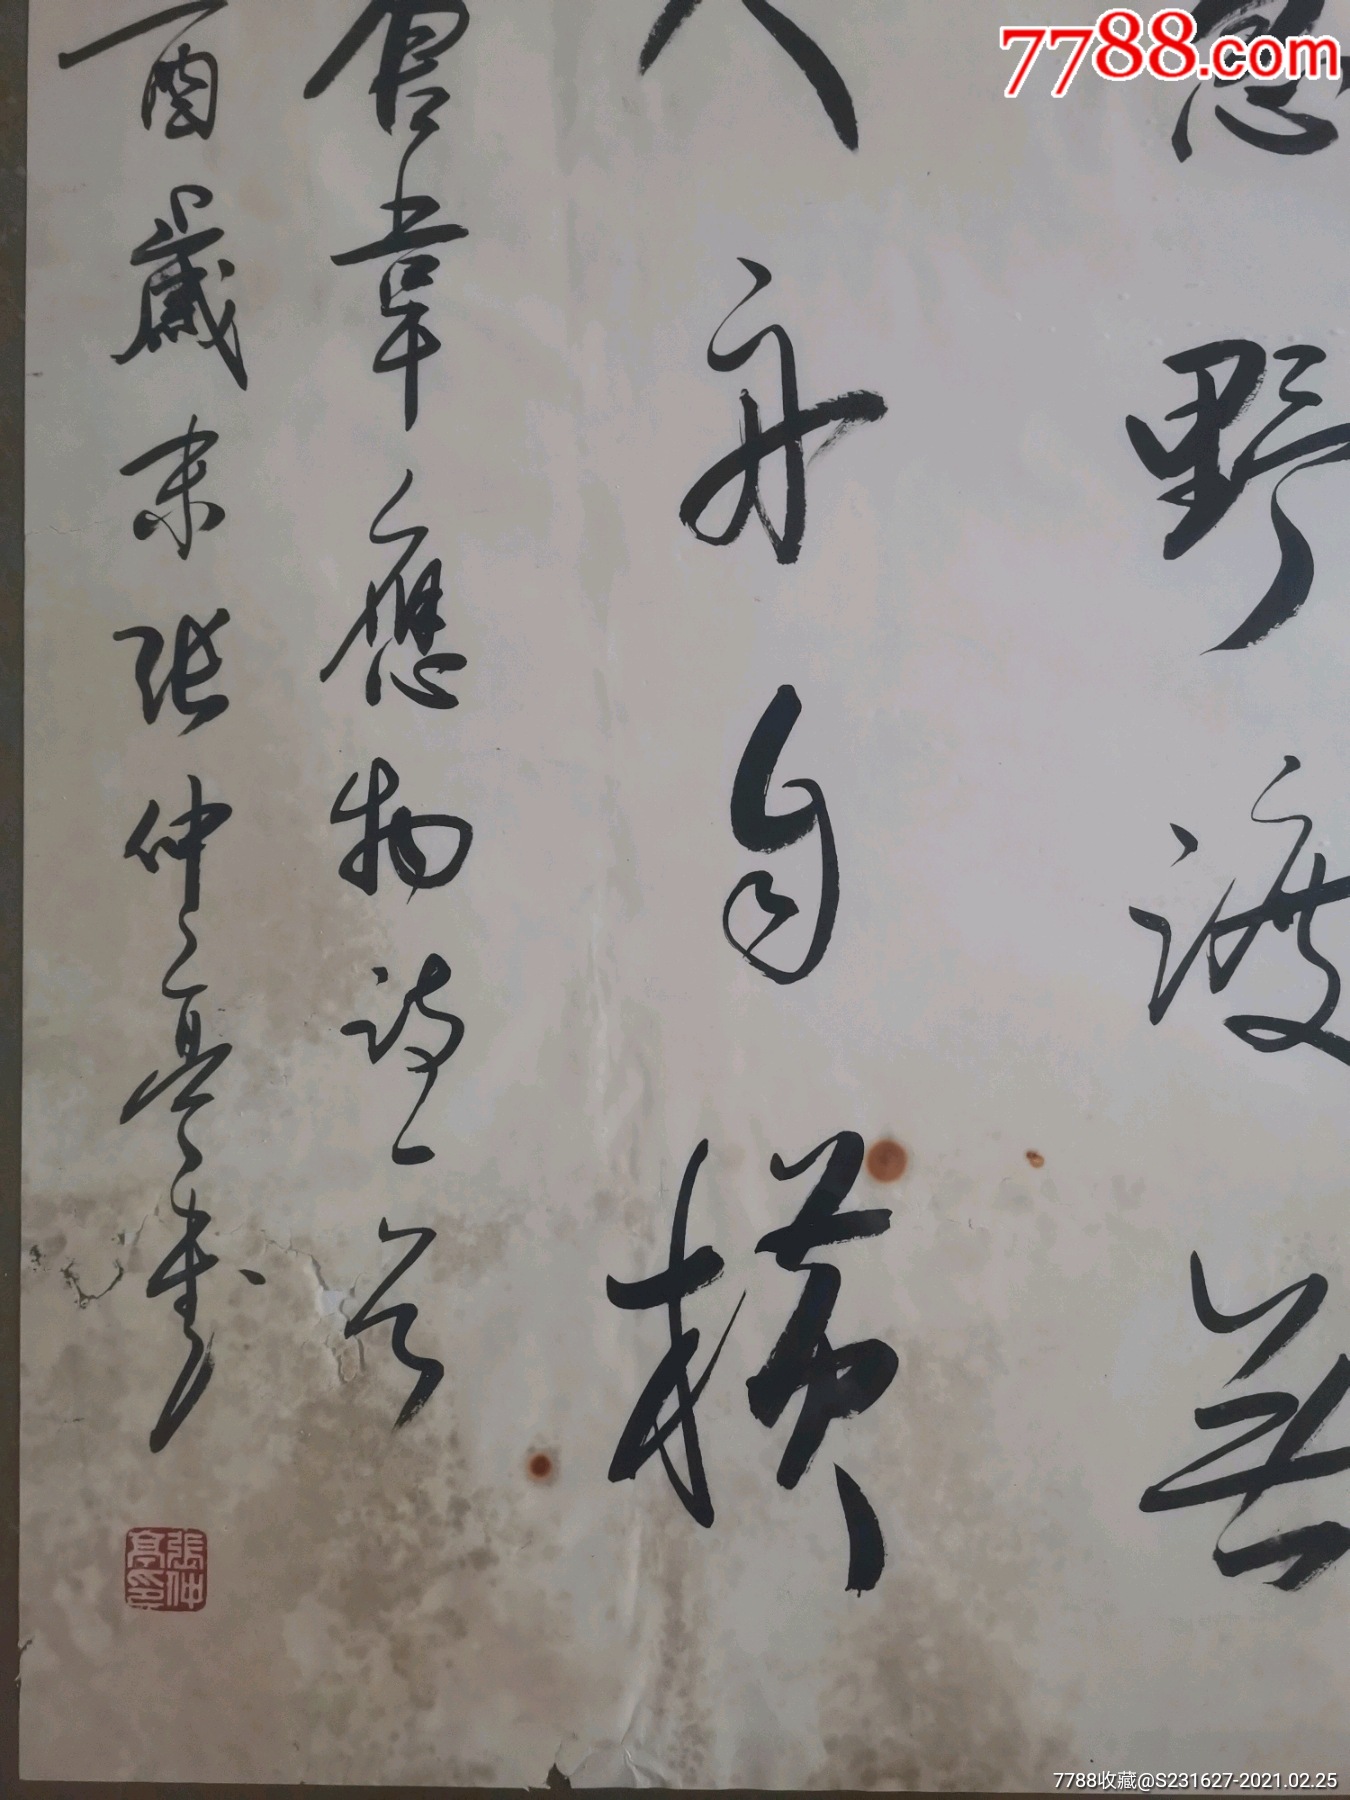 7788.com
急野渡无
人舟自横
唐韦應物詩一首
酉歲末張仲亭书
張仲
亭印
7788收藏@S231627-2021.02.25